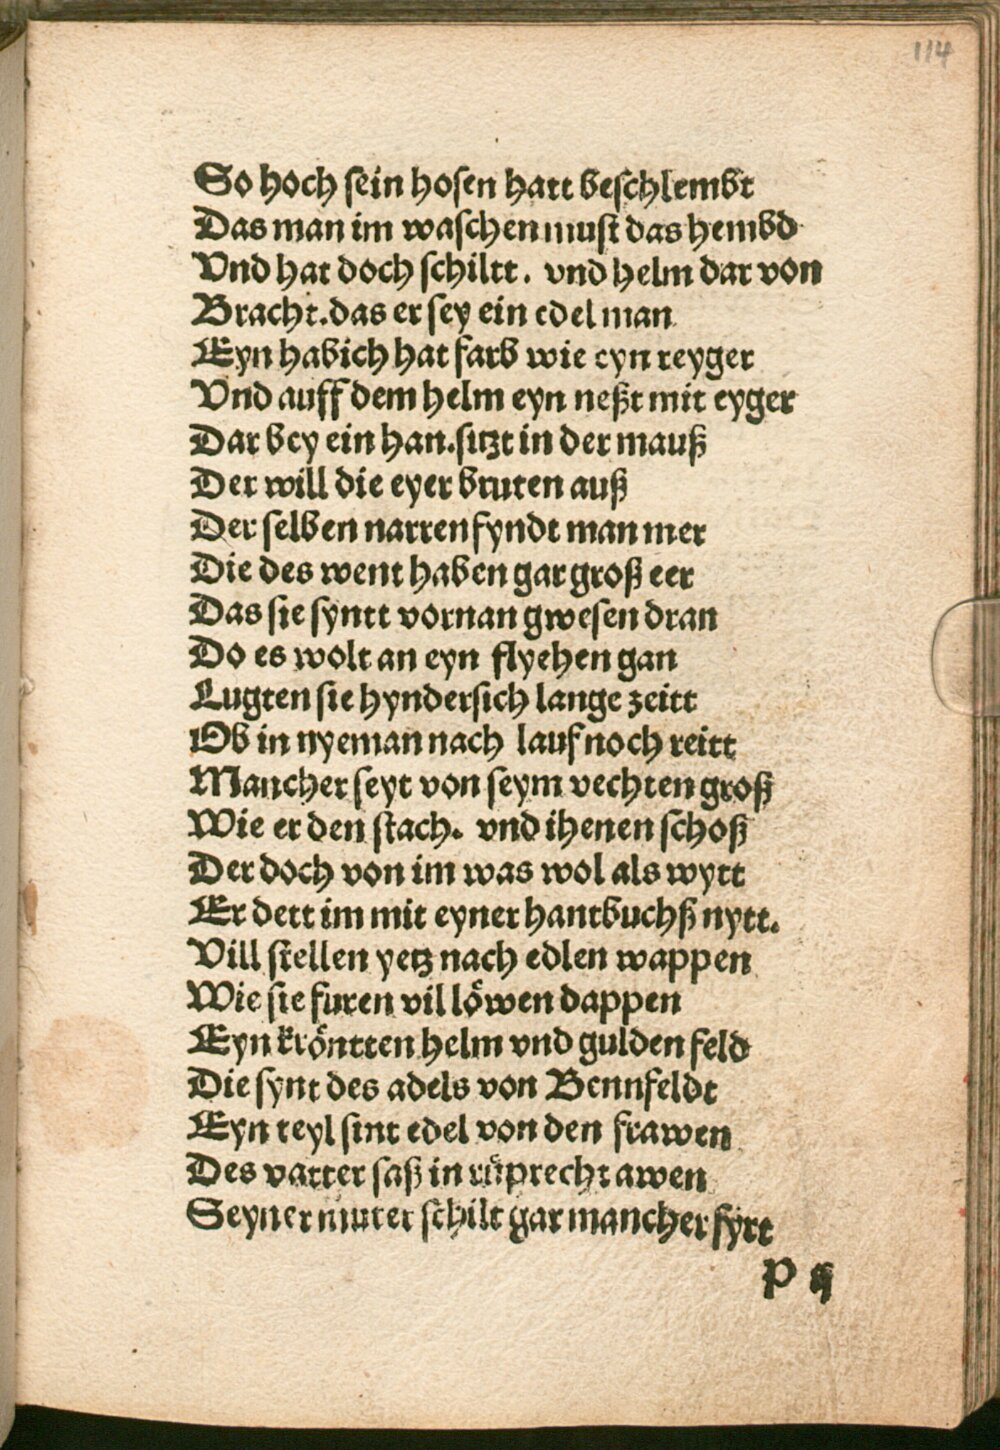 114
So hoch sein hosen hatt beschlembt
Das man im waschen must das hembd
Vnd hat doch schiltt. vnd helm dar von
Bracht.das er sey ein edel man
Eyn habich hat farb wie eyn reyger
Vnd auff dem helm eyn neßt mit eyger
Dar bey ein han.sitzt in der mauß
Der will die eyer bruten auß
Der selben narren fyndt man mer
Die des went haben gar groß eer
Das sie syntt vornan gwesen dran
Do es wolt an eyn flyehen gan
Lugten sie hyndersich lange zeitt
Ob in nyeman nach lauf noch reitt
Mancher seyt von seym vechten groß
Wie er den stach. vnd ihenen schoß
Der doch von im was wol als wytt
Er dett im mit eyner hantbuchß nytt.
Vill stellen yetz nach edlen wappen
Wie sie furen vil löwen dappen
Eyn kröntten helm vnd gulden feld
Die synt des adels von Bennfeldt
Eyn teyl sint edel von den frawen
Des vatter saß in růprecht awen
Seyner muter schilt gar mancher fyrt
P ij